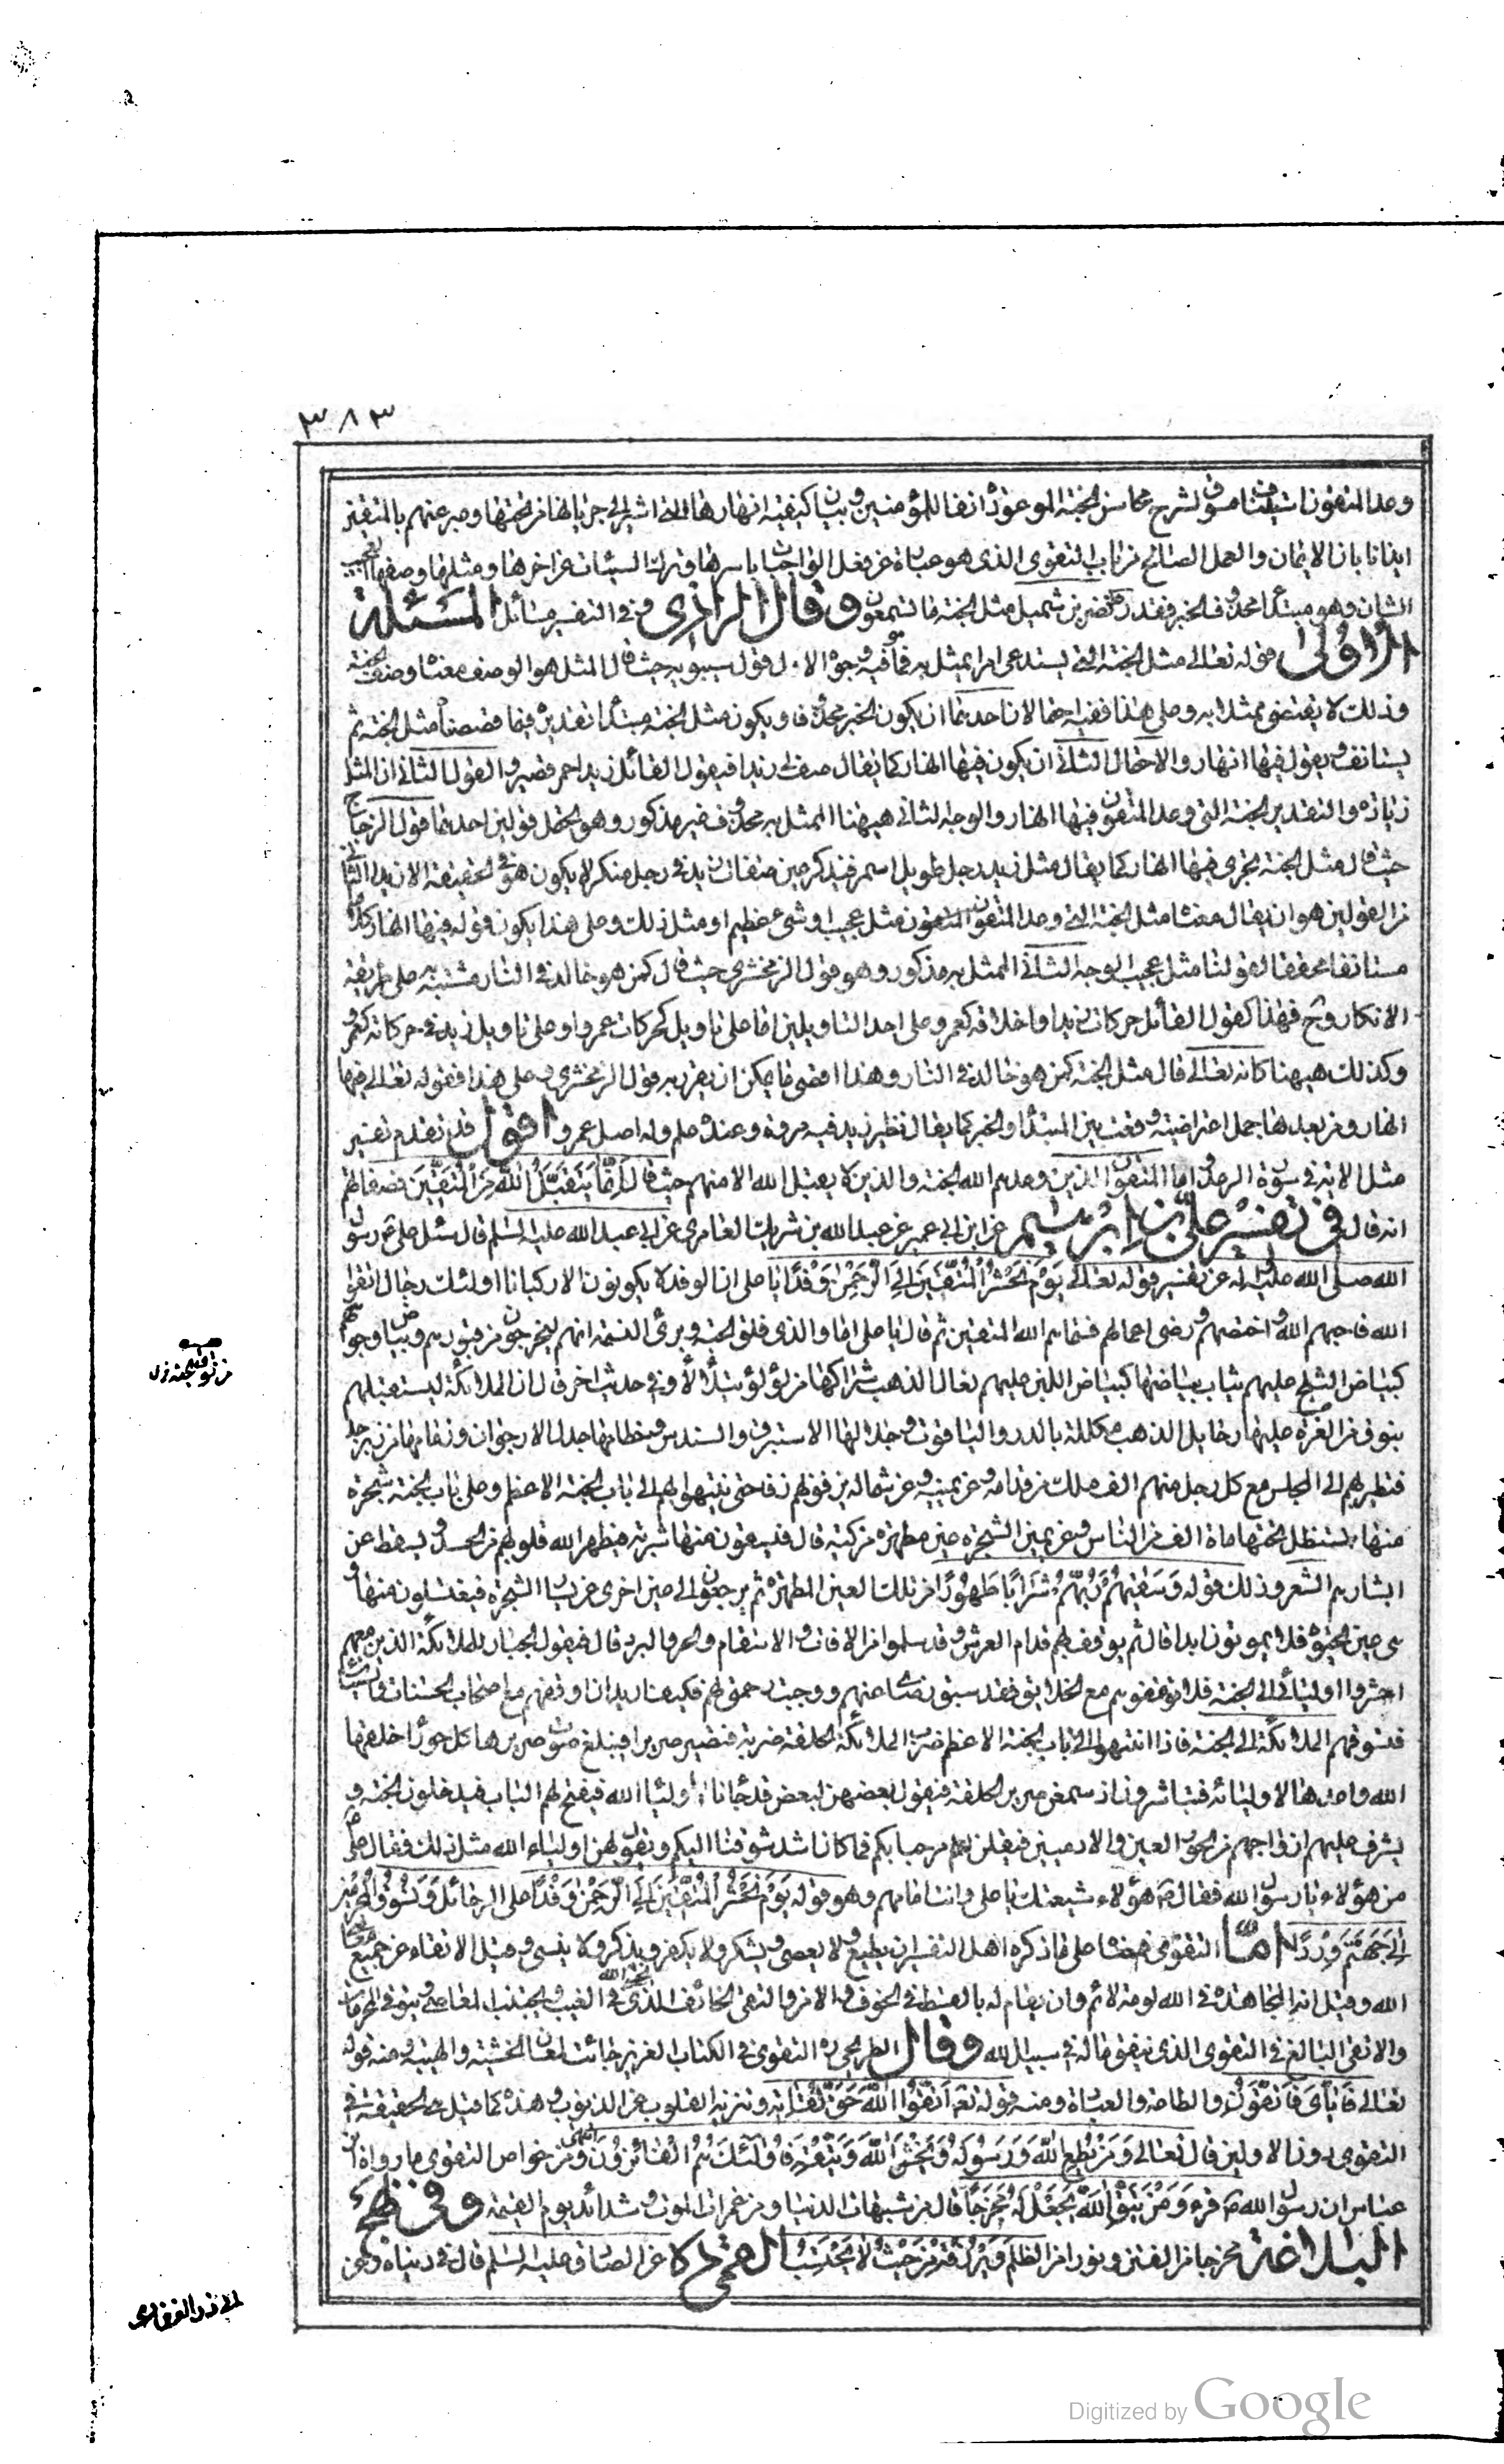 ٣٨٣
وعد المتقون استيناف مسوق لشرح محاسن الجنة الموعودة انفا للمؤمنين وبيان كيفية انهارها التى اشير الى جريانها من تحتها وعبر عنهم بالمتقين
ايذانا بان الايمان والعمل الصالح من باب التقوى الذى هو عبارة عن فعل الواجبات باسرها وترك السيئات عن اخرها ومثلها وصفها العجيب
الشان وهو مبتدا محذوف الخبر فقدره نضر بن شميل مثل الجنة ما تسمعون وقال الرازى وفى التفسير مسائل المسئلة
الاولى قوله تعالى مثل الجنة التى يستدعى امرا يمثل به فما هو فيه وجوه الاول قول سيبويه حيث قال المثل هو الوصف معناه وصف الجنة
وذلك لا يقتضى ممثلا به وعلى هذا ففيه احتمالان احدهما ان يكون الخبر محذوفا ويكون مثل الجنة مبتدا تقديره فيما قصصناه مثل الجنة ثم
يستانف ويقول فيها انهار والاحتمال الثانى ان يكون فيها انهار كما يقال صف لى زيدا فيقول القائل زيد احمر قصير والقول الثانى ان المثل
زيادة والتقدير الجنة التى وعد المتقون فيها انهار والوجه الثانى هيهنا الممثل به محذوف غير مذكور وهو يحتمل قولين احدهما قول الزجاج
حيث قال مثل الجنة جنة تجرى فيها انهار كما يقال مثل زيد رجل طويل اسمر فيذكر عين صفات زيد فى رجل منكر لا يكون هو فى الحقيقة الا زيد الثانى
من القولين هو ان يقال معناه مثل الجنة التى وعد المتقون مثل عجيب او شئ عظيم او مثل ذلك وعلى هذا يكون قوله فيها انهار كلاما
مستانفا محققا لقولنا مثل عجيب الوجه الثانى الممثل به مذكور وهو قول الزمخشرى حيث قال كمن هو خالد فى النار مشبه به على طريقة
الانكار وح فهذا كقول القائل حركات زيد او اخلاقه كعمرو على احد التاويلين اما على تاويل كحركات عمرو او على تاويل زيد فى حركاته كعمرو
وكذلك هيهنا كانه تعالى قال مثل الجنة كمن هو خالد فى النار وهذا اقصى ما يمكن ان يقرر به قول الزمخشرى وعلى هذا فقوله تعالى فيها
انهار ومن بعدها جمل اعتراضية وقعت بين المبتدا والخبر كما يقال نظير زيد فيه مروة وعنده علم وله اصل عمرو اقول قد تقدم تفسير
مثل الاية فى سورة الرعد واما المتقون الذين وعدهم الله الجنة والذين لا يقبل الله الا منهم حيث قال انما يتقبل الله من المتقين فصفاتهم
انه قال فى تفسير على بن ابرهيم عن ابن ابى عمير عن عبد الله بن شريك العامرى عن ابى عبد الله عليه السلم قال سئل على ع رسول
الله صلى الله عليه واله عن تفسير قوله تعالى يوم نحشر المتقين الى الرحمن وفدا قال يا على ان الوفد لا يكونون الا ركبانا اولئك رجال اتقوا
الله فاحبهم الله واختصهم ورضى اعمالهم فسماهم الله المتقين ثم قال يا على اما والذى فلق الحبة وبرئ النسمة انهم ليخرجون من قبورهم وبياض وجوههم
كبياض الثلج عليهم ثياب بياضها كبياض اللبن عليهم نعال الذهب شراكها من لؤلؤ يتلألأ وفى حديث اخر قال ان الملائكة ليستقبلهم
بنوق من العزة عليها رحايل الذهب مكللة بالدر والياقوت وجلالها الاستبرق والسندس وخطامها جدل الارجوان وزمامها من زبرجد
فتطير بهم الى المجلس مع كل رجل منهم الف ملك من قدامه وعن يمينه وعن شماله يزفونهم زفا حتى ينتهوا بهم الى باب الجنة الاعظم وعلى باب الجنة شجرة
منها يستظل تحتها ماة الف من الناس وعن يمين الشجرة عين مطهرة مزكية قال فيسقون منها شربة فيطهر الله قلوبهم من الحسد ويسقط عن
ابشارهم الشعر وذلك قوله وسقيهم ربهم شرابا طهورا من تلك العين المطهرة ثم يرجعون الى عين اخرى عن يسار الشجرة فيغتسلون منها و
هى عين الحيوة فلا يموتون ابدا قال ثم يوقف بهم قدام العرش وقد سلموا من الافات والاسقام والحر والبرد قال فيقول الجبار للملائكة الذين معهم
احشروا اوليائى الى الجنة فلا توقفوهم مع الخلائق فقد سبق رضائى عنهم ووجبت رحمتى لهم فكيف اريد ان اوقفهم مع اصحاب الحسنات والسيئات
فتسوقهم الملائكة الى الجنة فاذا انتهوا الى باب الجنة الاعظم ضرب الملائكة الحلقة ضربة فتصير صريرا فيبلغ صوت صريرها كل حوراء خلقها
الله واعدها لاوليائه فيتباشرون اذ سمعن صرير الحلقة فيقول بعضهن لبعض قد جاءنا اولياء الله فيفتح لهم الباب فيدخلون الجنة و
يشرف عليهم ازواجهم من الحور العين والادميين فيقلن لهم مرحبا بكم فما كان اشد شوقنا اليكم ويقول لهن اولياء الله مثل ذلك فقال على ع
من هؤلاء يا رسول الله فقال ص هؤلاء شيعتك يا على وانت امامهم وهو قوله يوم نحشر المتقين الى الرحمن وفدا على الرحائل ونسوق المجرمين
الى جهنم وردا اما التقوى فمعناها على ما ذكره اهل التفسير ان يطيع ولا يعصى ويشكر ولا يكفر ويذكر ولا ينسى وقيل الاتقاء عن جميع معاصى
الله وقيل انه المجاهدة فى الله لومة لائم وان يقام له بالقسط فى الخوف والامن والتقى الخائف الذى يخشى الله فى الغيب ويجتنب المعاصى ويتوقى المحرمات
والاتقى البالغ فى التقوى الذى ينفق ماله فى سبيل الله وقال الطريحى ره التقوى فى الكتاب العزيز جائت لمعان الخشية والهيبة ومنه قوله
تعالى فاياى فاتقون والطاعة والعبادة ومنه قوله تعالى اتقوا الله حق تقاته وتنزيه القلوب عن الذنوب وهذه كما قيل هى الحقيقة فى
التقوى دون الاولين قال تعالى ومن يطع الله ورسوله ويخش الله ويتقه فاولئك هم الفائزون انتهى ومن خواص التقوى ما رواه ابن
عباس ان رسول الله ص قرء ومن يتق الله يجعل له مخرجا قال من شبهات الدنيا ومن غمرات الموت وشدائد يوم القيمة وفى نهج
البلاغة مخرجا من الفتن ونورا من الظلم ويرزقه من حيث لا يحتسب عن الصادق عليه السلم قال فى دنياه وعن
ابى ذر الغفارى
Digitized by Google